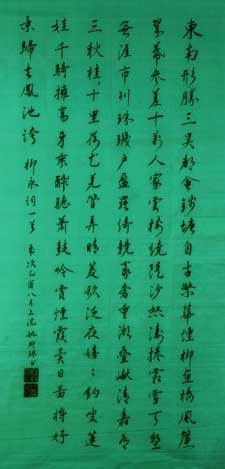 東南形勝三吳都會錢塘自古繁華煙柳畫橋風簾
翠幕參差十萬人家雲樹繞堤沙怒濤捲霜雪天塹
無涯市列珠璣戶盈羅綺競豪奢重湖疊巘清嘉有
三秋桂子十里荷花羌管弄晴菱歌泛夜嬉嬉釣叟蓮
娃千騎擁高牙乘醉聽簫鼓吟賞煙霞異日圖將好
景歸去鳳池誇 柳永詞一首 歲次乙酉八月上浣姚